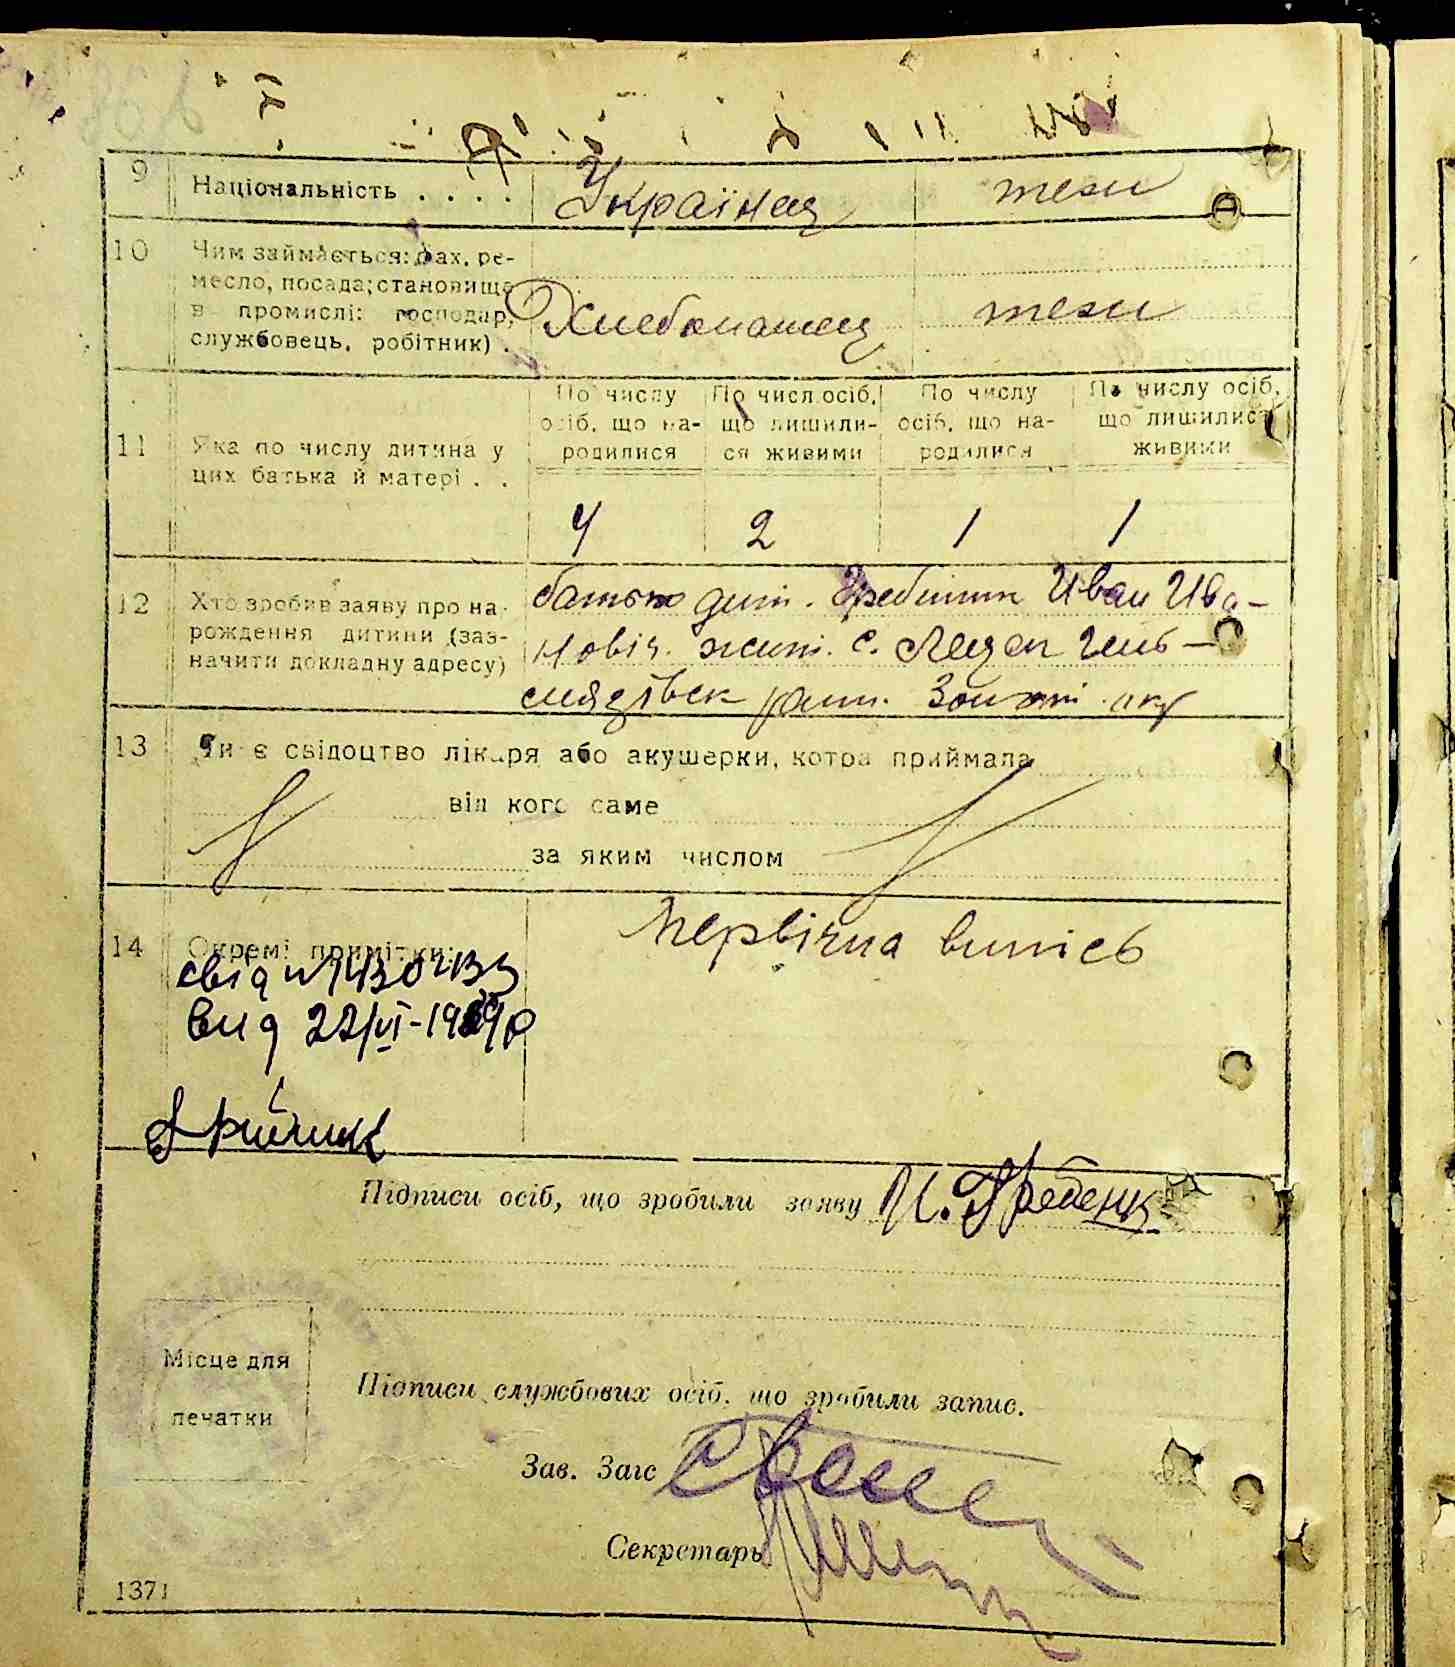 9 Національність . . . . Українец теж
10 Чим займається: фах, ре-
месло, посада; становище
в промислі: господар,
службовець, робітник) . Хлебопашец теж
11 Яка по числу дитина у
цих батька й матері . .
По числу осіб, що на- родилися
По числ.осіб, що лишили- ся живими
По числу осіб, що на- родилися
По числу осіб, що лишилися живими
4 2 1 1
12 Хто зробив заяву про на-
рождення дитини (заз-
начити докладну адресу)
батько дит. Гребінник Иван Ива-
новіч. жит. с.
13 Чи є свідоцтво лікаря або акушерки, котра приймала
від кого саме
за яким числом
14 Окремі примітки:
Первічна випісь
свід №
вид 22/VI-19
Підписи осіб, що зробили заяву И.
Місце для
печатки
Підписи службових осіб, що зробили запис.
Зав. Загс
Секретарь
1371